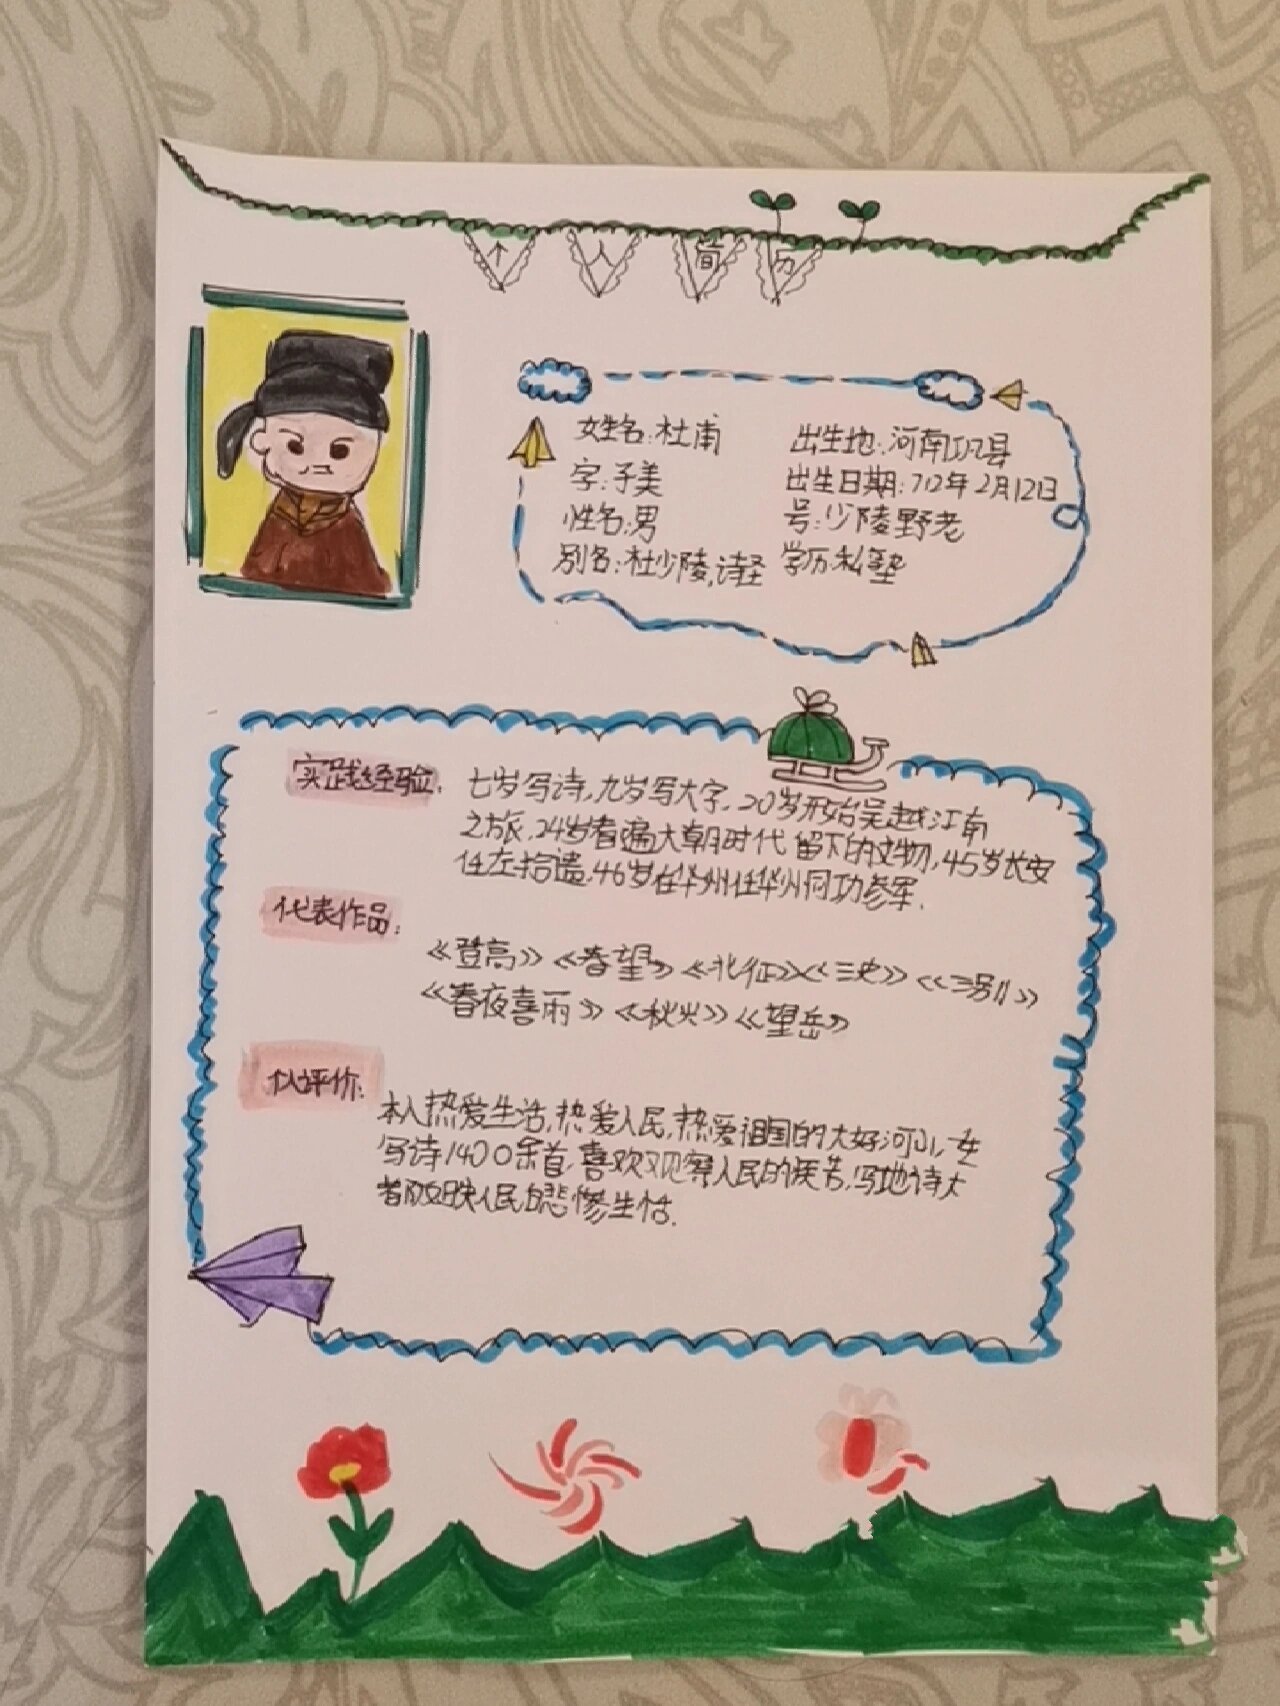 个人简历
姓名:杜甫
出生地:河南巩县
字:子美
出生日期:712年2月12日
性名:男
号:少陵野老
别名:杜少陵,诗圣
学历:私塾
实践经验:
七岁写诗,九岁写大字,20岁开始吴越江南
之旅,24岁看遍大朝时代留下的文物,45岁长安
任左拾遗,46岁在华州任华州司功参军.
代表作品:
《登高》《春望》《北征》《三吏》《三别》
《春夜喜雨》《秋兴》《望岳》
评价:
本人热爱生活,热爱人民,热爱祖国的大好河山,
写诗1400余首,喜欢观察人民的疾苦,写地诗大
人民的悲惨生活.